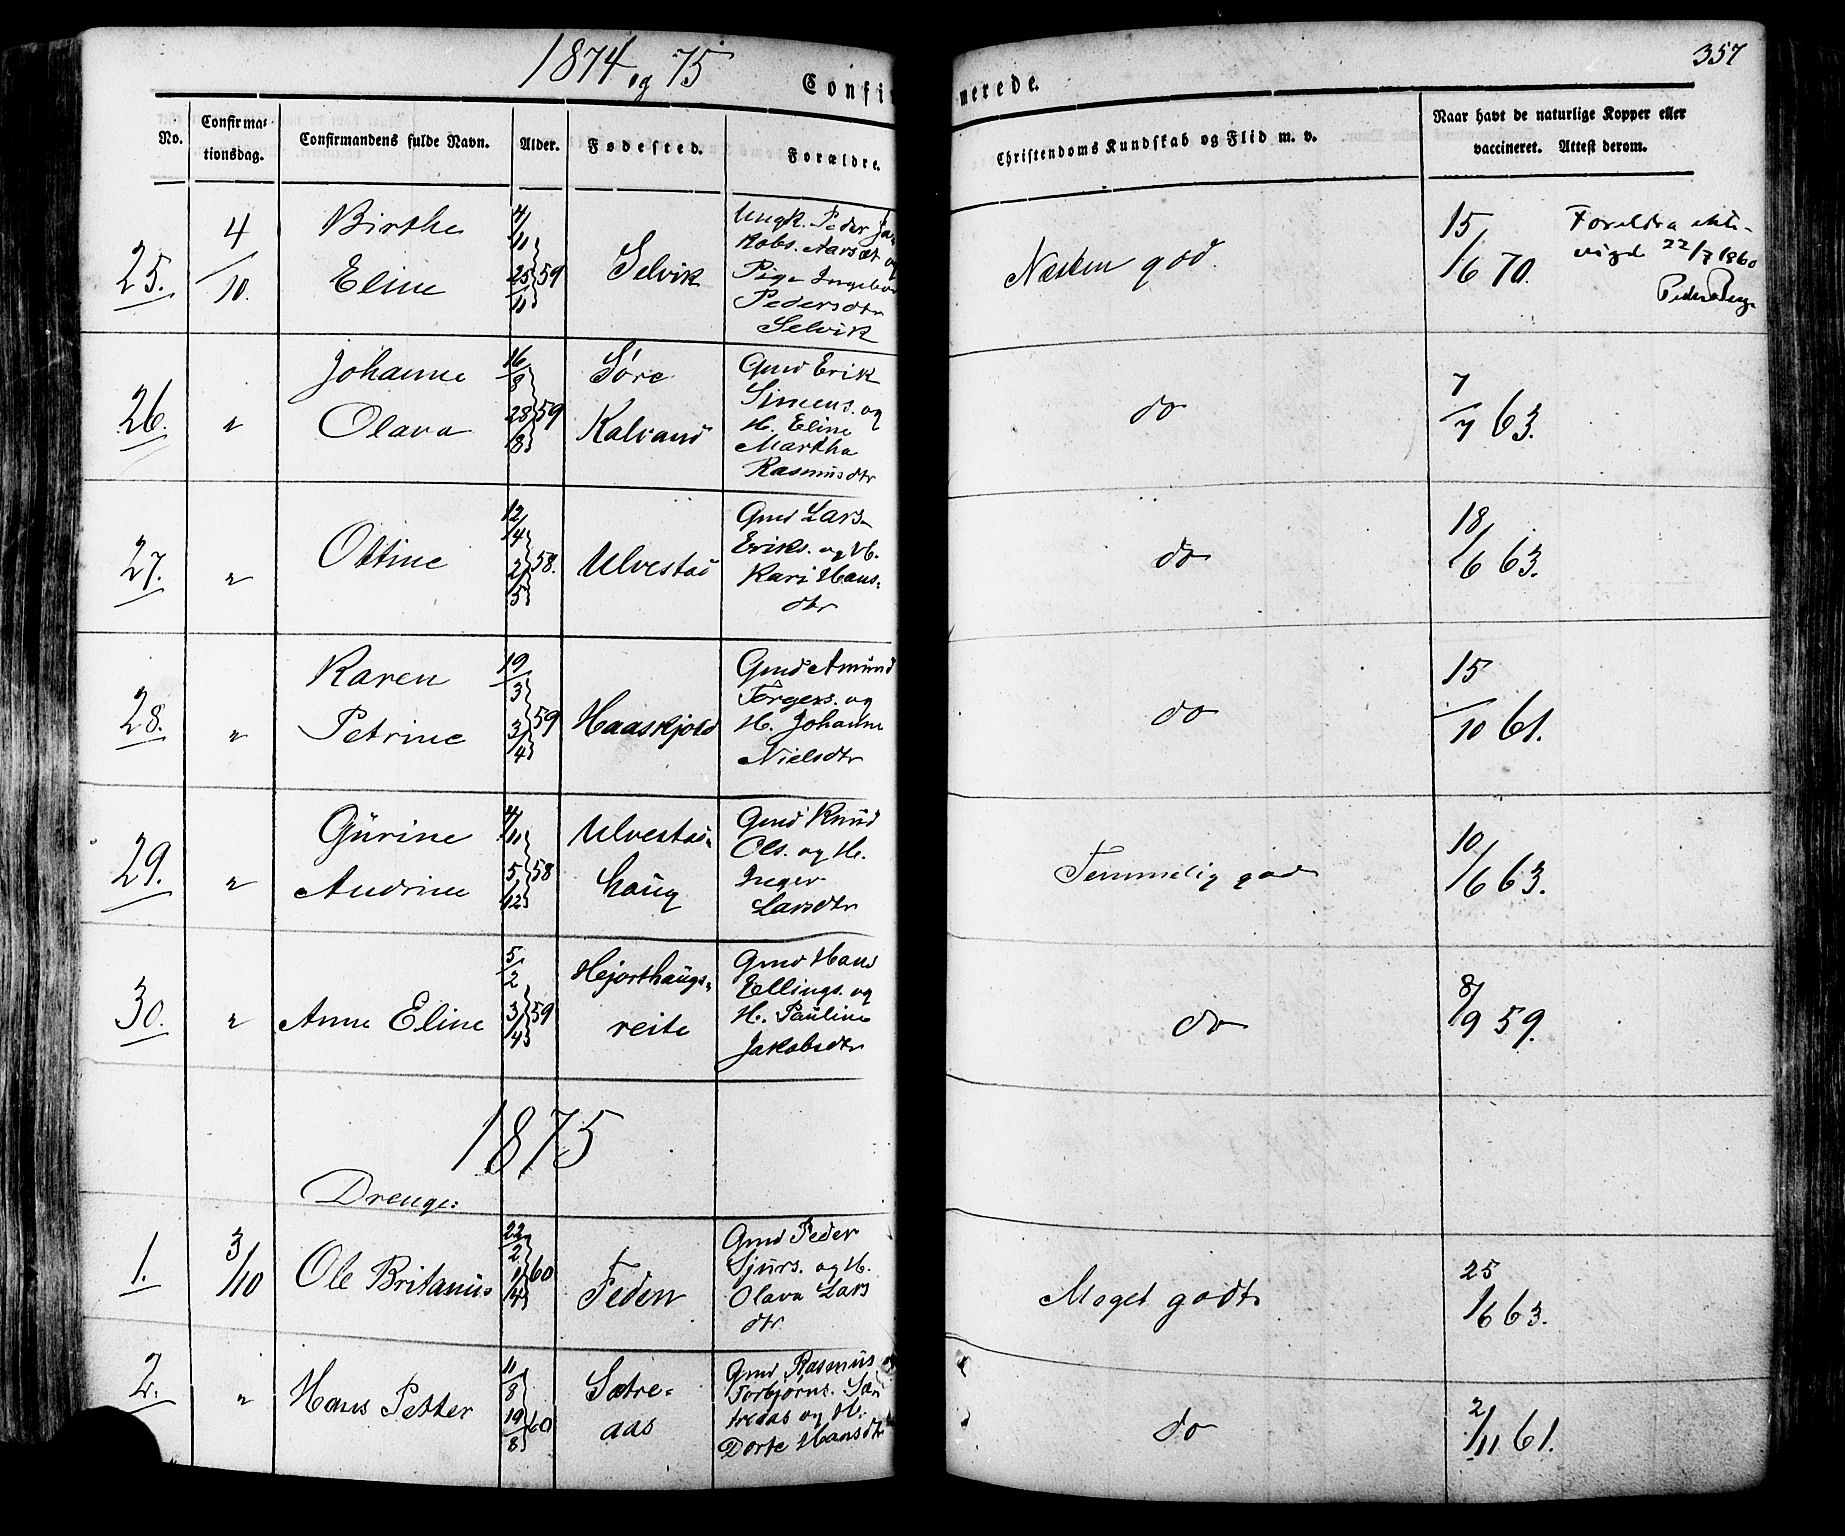 1874 og 75
357
Confirmerede.
No.
Confirma-
tionsdag.
Confirmandens fulde Navn.
Alder.
Fødested.
Forældre.
Christendoms Kundskab og Flid m. v.
Naar havt de naturlige Kopper eller
vaccineret. Attest derom.
25.
4/10.
Birthe
Eline
4/11
25/11 59
Selvik
Ungk. Peder Ja-
kobs. Aarsæt og
Pige Ingebor
Pedersdtr
Selvik
Næsten god.
15/6 70.
Foreldra ikkje
vigd 22/7 1860
26.
"
Johanne
Olava
16/8
28/8 59
Søre
Kalvand
Gmd Erik
Simens. og
H. Eline
Martha
Rasmusdtr
do
7/7 63.
27.
"
Ottine
12/4
2/5 58.
Ulvestad
Gmd Lars
Eriks. og H.
Kari Hans-
dtr
do
18/6 63.
28.
"
Karen
Petrine
19/3
3/4 59
Haaskjold
Gmd Amund
Torgers. og
H. Johanne
Nielsdtr
do
15/10 61.
29.
"
Gurine
Andrine
4/11
5/12 58
Ulvestad-
haug
Gmd Knud
Ols. og H.
Inger
Larsdtr
Temmelig god
10/6 63.
30.
"
Anne Eline
5/2
3/4 59
Hejorthaugs-
reite
Gmd Hans
Ellings. og
H. Pauline
Jakobsdtr
do
8/9 59.
1875
Drenge:
1.
3/10
Ole Britanus
22/2
1/4 60
Feden
Gmd Peder
Sjurs. og H.
Olava Lars
dtr.
Meget godt
25/6 63.
2.
"
Hans Petter
11/8
19/8 60
Sætre-
aas
Gmd Rasmus
Torbjørns. Sæ
treaas og H.
Dorte Hansdtr
do
2/11 61.